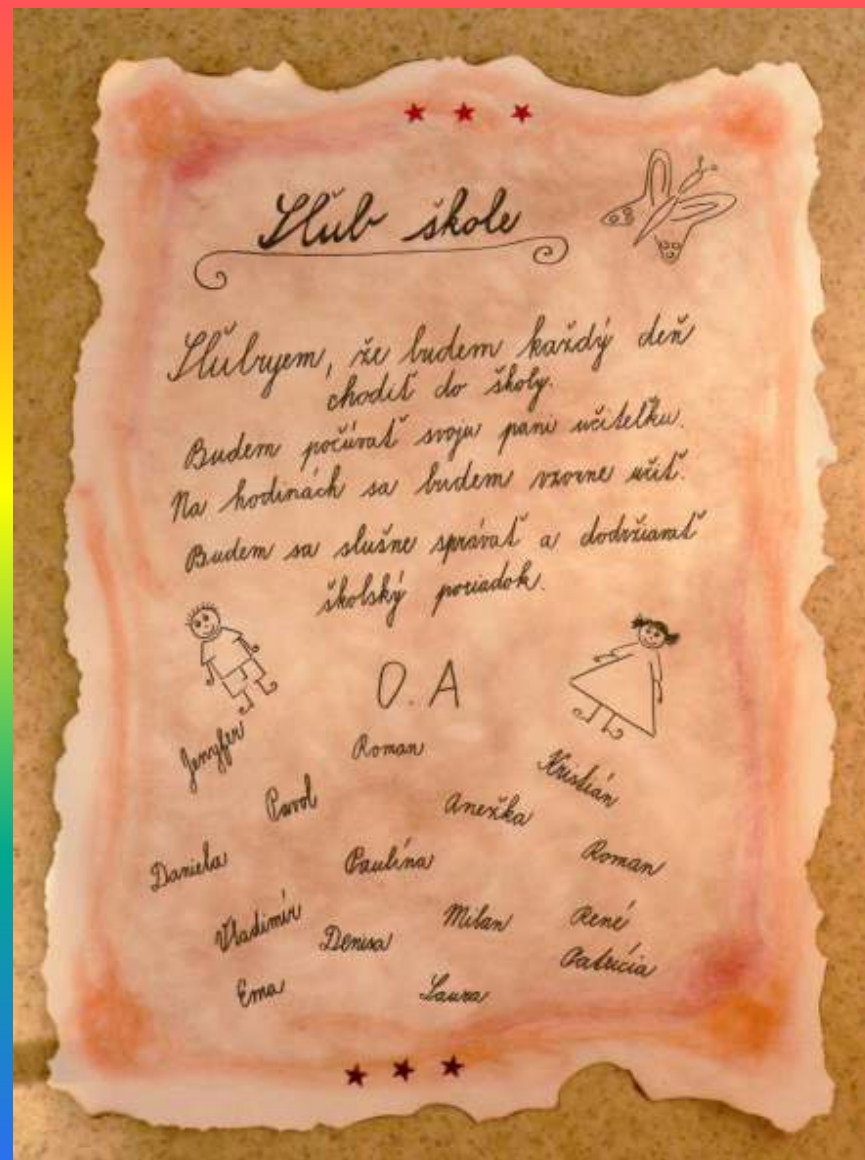 Sľub škole
Sľubujem, že budem každý deň
chodiť do školy.
Budem počúvať svoju pani učiteľku.
Na hodinách sa budem vzorne učiť.
Budem sa slušne správať a dodržiavať
školský poriadok.
0.A
Jenyfer Roman Kristián
Pavol Anežka
Daniela Paulína Roman
Vladimír Denisa Milan René
Patrícia
Ema Laura